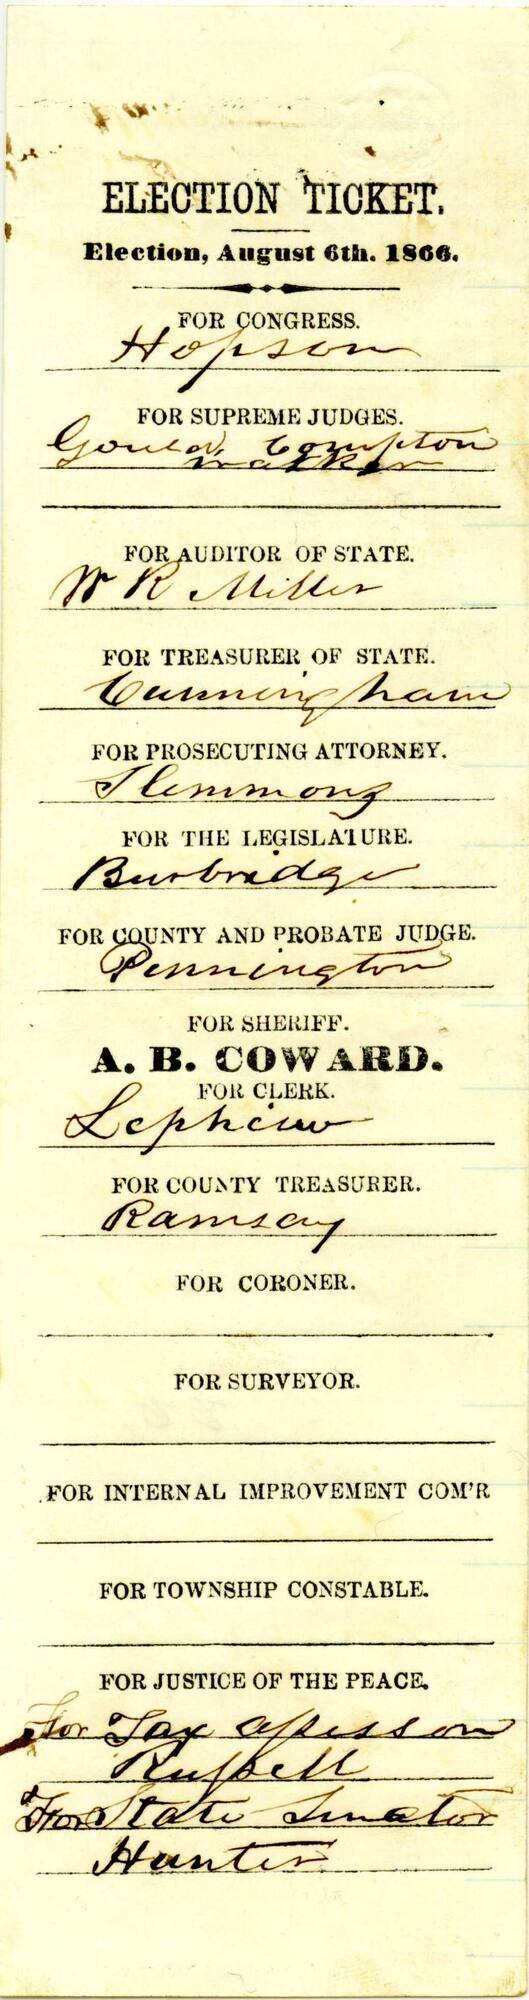 ELECTION TICKET.
Election, August 6th. 1866.
FOR CONGRESS.
Hopson
FOR SUPREME JUDGES.
Gould, Compton
Walker
FOR AUDITOR OF STATE.
W R Miller
FOR TREASURER OF STATE.
Cunningham
FOR PROSECUTING ATTORNEY.
Slemmons
FOR THE LEGISLATURE.
Burbridge
FOR COUNTY AND PROBATE JUDGE.
Pennington
FOR SHERIFF.
A. B. COWARD.
FOR CLERK.
Lephiew
FOR COUNTY TREASURER.
Ramsay
FOR CORONER.
FOR SURVEYOR.
FOR INTERNAL IMPROVEMENT COM'R
FOR TOWNSHIP CONSTABLE.
FOR JUSTICE OF THE PEACE.
For Tax assessor
Russell
For State Senator
Hunter